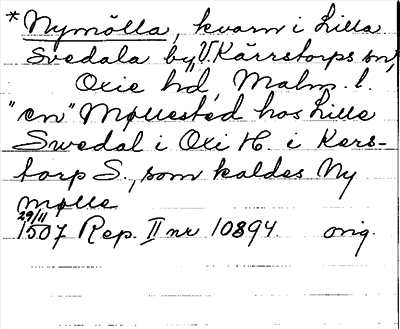 * Nymölla, kvarn i Lilla
Svedala by, V. Kärrstorps sn,
Oxie hd, Malm. l.
"en" Møllested hos Lille
Swedal i Oxi H. i Kers-
torp S., som kaldes Ny
Mølle
29/11
1507 Rep. II nr 10894. orig.